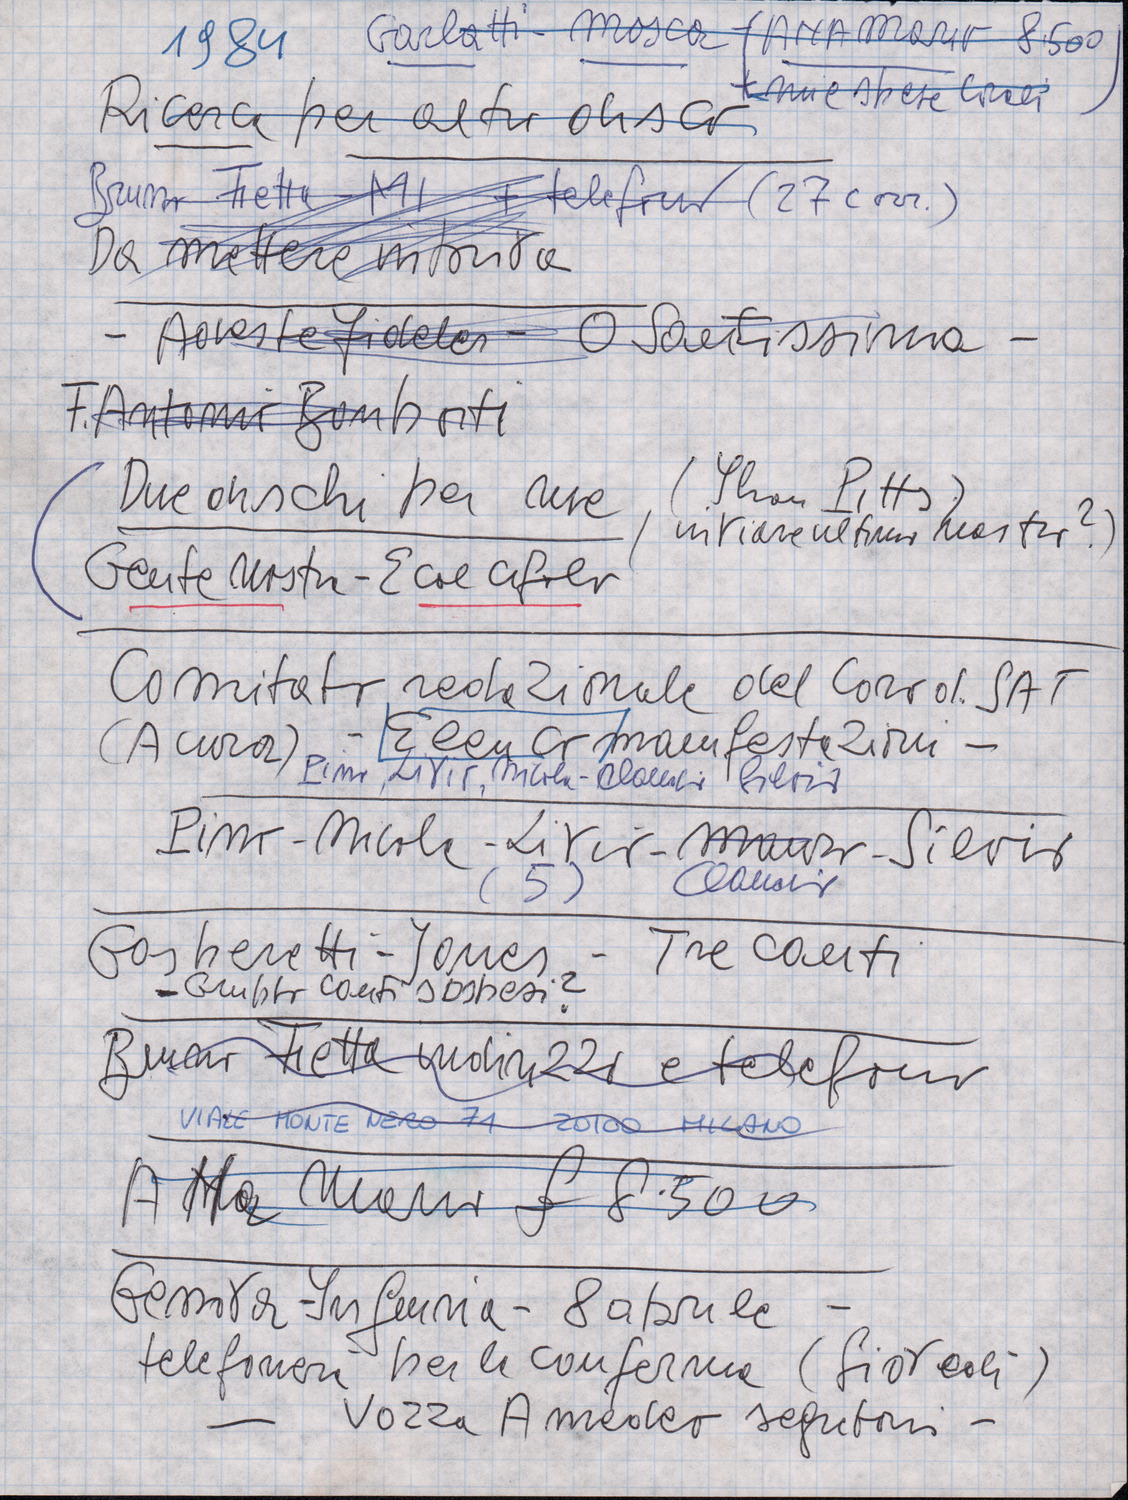 1984 Garbatti - Mosca - (ANA Mauro 8.500
+ mie spese
Ricerca per altro disco
Bruno Fietta - MI + telefono (27 corr.)
Da mettere in
- Adeste fideles - O Santissima -
F. Antonio Bomporti
Due dischi per me (Pitts)
inviare ultimo nastro?)
Gente nostra - Ecoe
Comitato redazionale del Coro d. SAT
(A cura) - Elenco manifestazioni -
Pino, Livio, Nicola - Claudio Silvio
Pino - Nicola - Livio - Mauro - Silvio
(5) Claudio
Gasperetti - Jones - Tre canti
- Gruppo canti sospesi?
Bruno Fietta indirizzo e telefono
VIALE MONTE NERO 71 20100 MILANO
A Mauro £ 8.500
Genova - Insegna - 8 aprile -
telefonerà per la conferma (giovedì)
— Vozza Amedeo segretario -